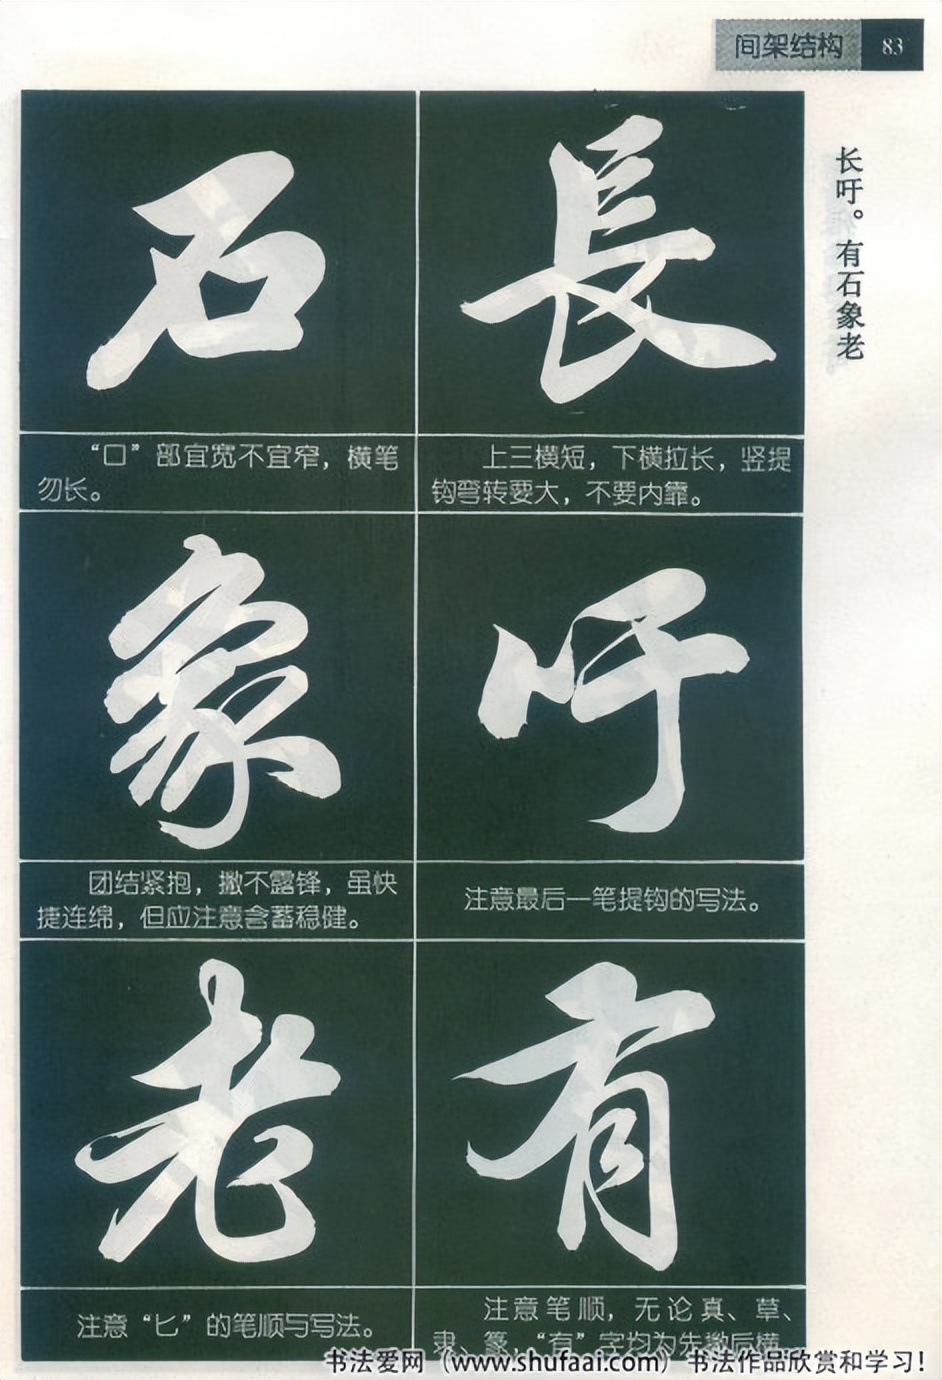 间架结构 83
长吁。有石象老
長
上三横短，下横拉长，竖提
钩弯转要大，不要内靠。
吁
注意最后一笔提钩的写法。
有
注意笔顺，无论真、草、
隶、篆，“有”字均为先撇后横
石
“口”部宜宽不宜窄，横笔
勿长。
象
团结紧抱，撇不露锋，虽快
捷连绵，但应注意含蓄稳健。
老
注意“匕”的笔顺与写法。
书法爱网（www.shufaai.com）书法作品欣赏和学习！